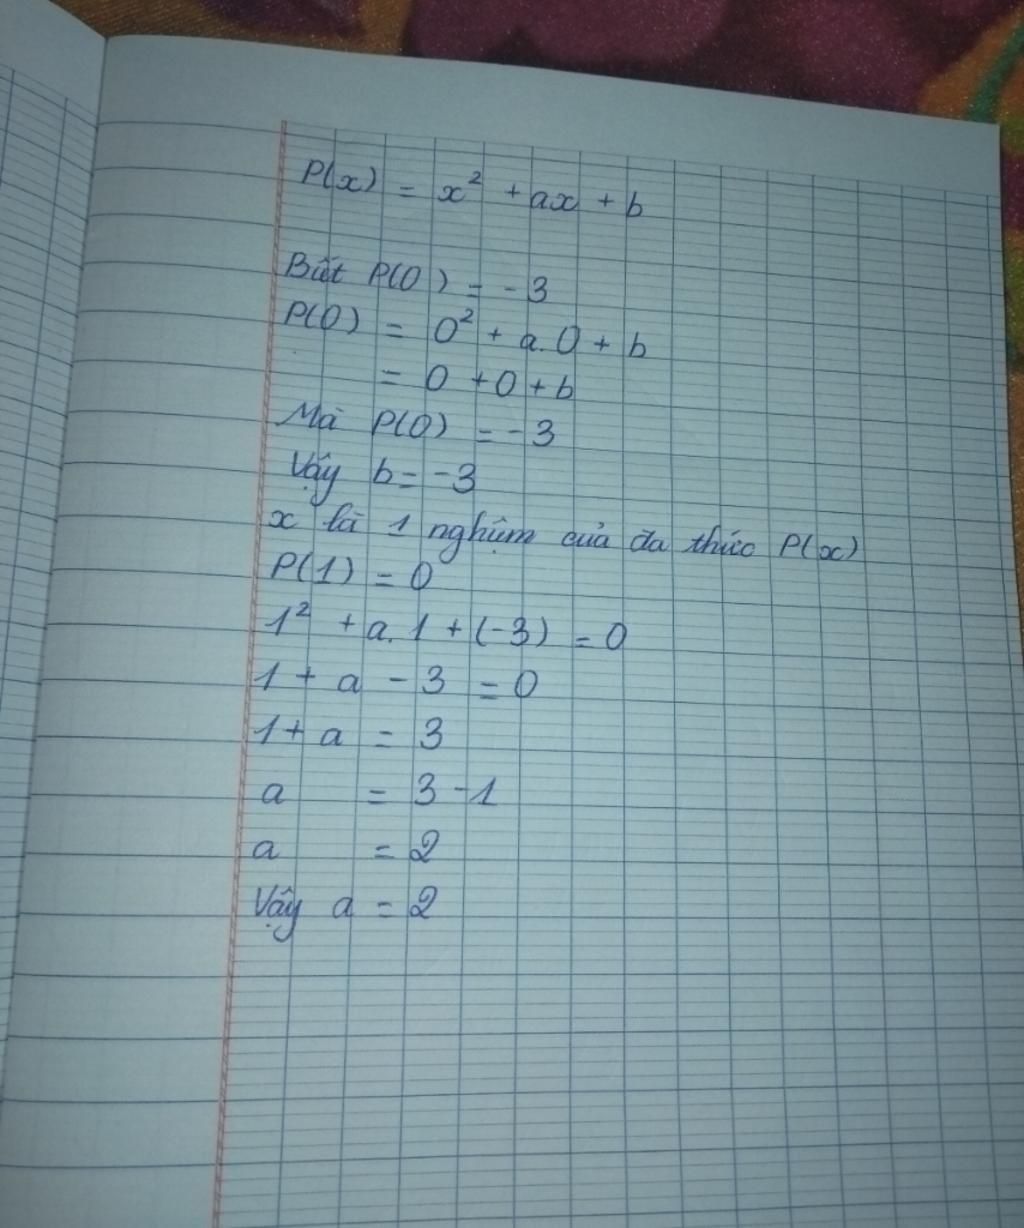 P(x) = x² + ax + b
Biết P(0) = -3
P(0) = 0² + a.0 + b
= 0 + 0 + b
Mà P(0) = -3
Vậy b = -3
x là 1 nghiệm của đa thức P(x)
P(1) = 0
1² + a.1 + (-3) = 0
1 + a - 3 = 0
1 + a = 3
a = 3 - 1
a = 2
Vậy a = 2